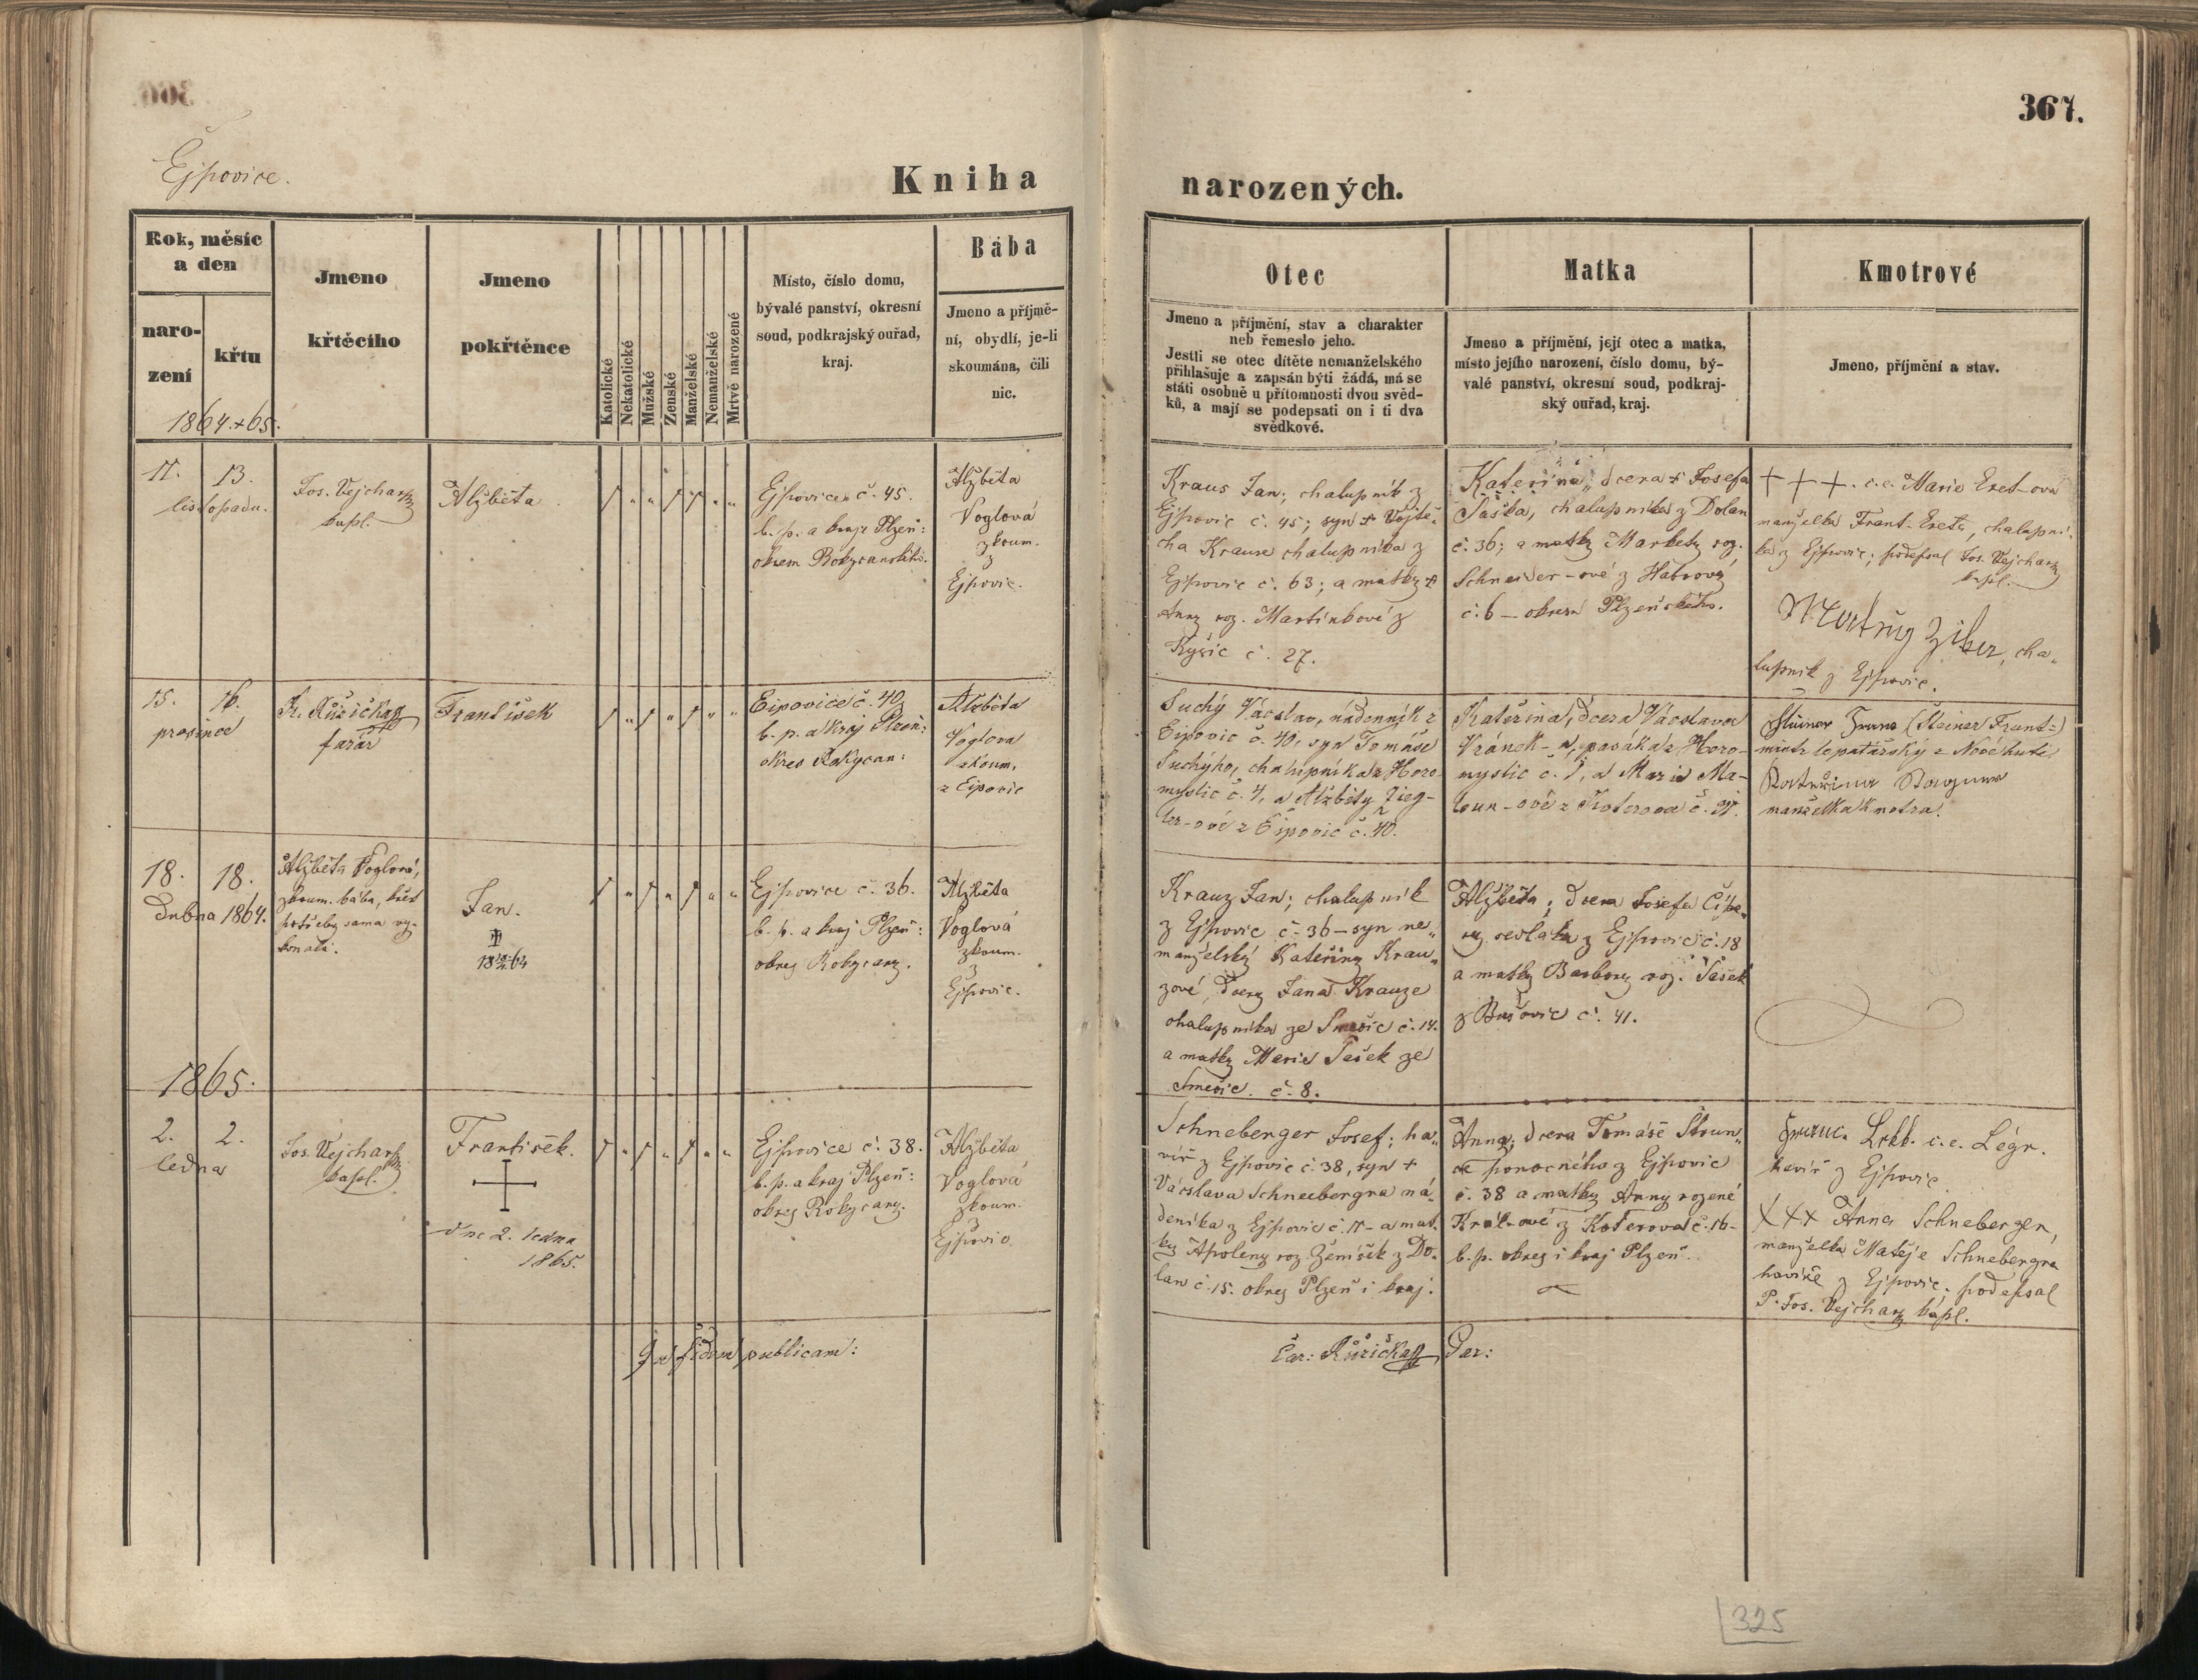 367.
Ejpovice.
Kniha narozených.
Rok, měsíc
a den
naro-
zení
křtu
1864.+65.
Jmeno
křtěcího
Jmeno
pokřtěnce
Katolické
Nekatolické
Mužské
Ženské
Manželské
Nemanželské
Mrtvě narozené
Místo, číslo domu,
bývalé panství, okresní
soud, podkrajský ouřad,
kraj.
Bába
Jmeno a příjmě-
ní, obydlí, je-li
skoumána, čili
nic.
Otec
Jmeno a příjmění, stav a charakter
neb řemeslo jeho.
Jestli se otec dítěte nemanželského
přihlašuje a zapsán býti žádá, má se
státi osobně u přítomnosti dvou svěd-
ků, a mají se podepsati on i ti dva
svědkové.
Matka
Jmeno a příjmění, její otec a matka,
místo jejího narození, číslo domu, bý-
valé panství, okresní soud, podkraj-
ský ouřad, kraj.
Kmotrové
Jmeno, příjmění a stav.
11. 13.
listopadu.
Jos. Vejchar
kapl.
Alžběta
Ejpovice č. 45.
b. p. a kraje Plzeň:
okresu Rokycanského.
Alžběta
Voglová
zkoum.
z
Ejpovic.
Kraus Jan; chalupník z
Ejpovic č. 45; syn + Vojtě-
cha Krause chalupníka z
Ejpovic č. 63; a matky +
Anny roz. Martínkové z
Kyšic č. 27.
Kateřina, dcera + Josefa
Saška, chalupníka z Dolan
č. 36; a matky Markety roz.
Schneider-ové z Habrové
č. 6 – okresu Plzeňského.
+ + +. c.e. Marie Eret-ová
manželka Frant. Ereta, chalupní-
ka z Ejpovic; podepsal Jos. Vejchar
kapl.
Ziber, cha-
lupník z Ejpovic.
15. 16.
prosince
Fr. Růžička
farář
František
Eipovice č. 40
b. p. a kraj Plzeň:
okres Rokycan:
Alžběta
Voglova
zkoum.
z Eipovic
Suchý Václav, nádenník z
Eipovic č. 40, syn Tomáše
Suchýho, chalupníka z Horo-
myslic č. 4, a Alžběty Zieg-
ler-ové z Eipovic č. 40.
Kateřina, dcera Václava
Vránek-a, pasáka z Horo-
myslic č. 1, a Marie Ma-
-ové z Koterova č.
Franz (Steiner Frant:)
mistr lopatářský z Nové huti
manželka kmotra.
18. 18.
dubna 1864.
Alžběta Voglová,
zkoum. bába, křest
potřeby sama vy-
konala.
Jan.
Ejpovice č. 36.
b. p. a kraj Plzeň:
okres Rokycany.
Alžběta
Voglová
zkoum.
z
Ejpovic.
Krauz Jan; chalupník
z Ejpovic č. 36 – syn ne-
manželský Kateřiny Krau-
zové, dcery Jana Krauze
chalupníka ze Smečic č. 14.
a matky Marie Sašek ze
Smečic. č. 8.
Alžběta; dcera Josefa
sedláka z Ejpovic č. 18
a matky Barbory roz. Sašek
z Bušovic č. 41.
1865.
2. 2.
ledna
Jos. Vejchar
kapl.
František.
dne 2. ledna
1865.
Ejpovice č. 38.
b. p. a kraj Plzeň:
okres Rokycany.
Alžběta
Voglová
zkoum.
z
Ejpovic
Schneberger Josef; ha-
víř z Ejpovic č. 38, syn +
Václava Schneebergra ná-
deníka z Ejpovic č. 11 – a mat-
ky Apoleny roz. Zemíšek z Do-
lan č. 15. okres Plzeň i kraj.
Anna; dcera Tomáše Stroun-
ponocného z Ejpovic
č. 38 a matky Anny rozené
Král-ové z Koterova č. 16 –
b. p. okres i kraj Plzeň.
c.e. Légr.
havíř z Ejpovic.
+++ Anna Schneberger,
manželka Matěje Schnebergra
havíře z Ejpovic. podepsal
P. Jos. Vejchar kapl.
In fidem publicam:
Car: Růžička Par:
325